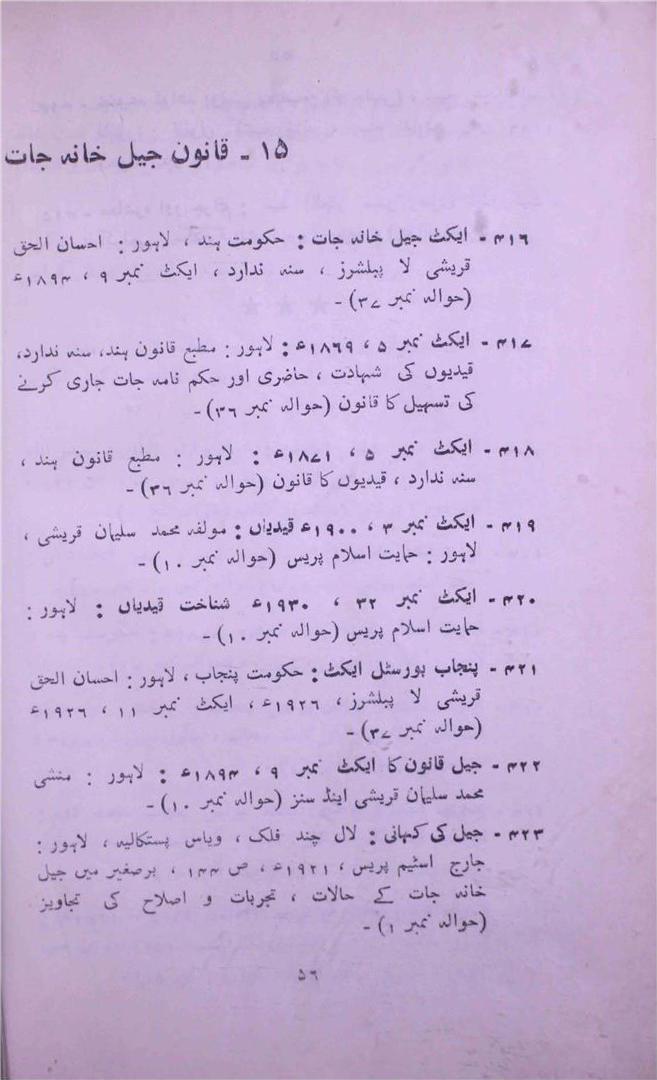 ۱۵ - قانون جیل خانہ جات
۴۱۶ - ایکٹ جیل خانہ جات : حکومت ہند ، لاہور : احسان الحق
قریشی لا پبلشرز ، سنہ ندارد ، ایکٹ نمبر ۹ ، ۱۸۹۴ء
(حوالہ نمبر ۳۷) -
۴۱۷ - ایکٹ نمبر ۵ ، ۱۸۶۹ء : لاہور : مطبع قانون ہند، سنہ ندارد،
قیدیوں کی شہادت ، حاضری اور حکم نامہ جات جاری کرنے
کی تسہیل کا قانون (حوالہ نمبر ۳۶) -
۴۱۸ - ایکٹ نمبر ۵ ، ۱۸۷۱ء : لاہور : مطبع قانون ہند ،
سنہ ندارد ، قیدیوں کا قانون (حوالہ نمبر ۳۶) -
۴۱۹ - ایکٹ نمبر ۳ ، ۱۹۰۰ء قیدیاں : مولفہ محمد سلیمان قریشی ،
لاہور : حمایت اسلام پریس (حوالہ نمبر ۱۰) -
۴۲۰ - ایکٹ نمبر ۳۲ ، ۱۹۳۰ء شناخت قیدیاں : لاہور :
حمایت اسلام پریس (حوالہ نمبر ۱۰) -
۴۲۱ - پنجاب بورسٹل ایکٹ : حکومت پنجاب ، لاہور : احسان الحق
قریشی لا پبلشرز ، ۱۹۲۶ء ، ایکٹ نمبر ۱۱ ، ۱۹۲۶ء
(حوالہ نمبر ۳۷) -
۴۲۲ - جیل قانون کا ایکٹ نمبر ۹ ، ۱۸۹۴ء : لاہور : منشی
محمد سلیمان قریشی اینڈ سنز (حوالہ نمبر ۱۰) -
۴۲۳ - جیل کی کہانی : لال چند فلک ، ویاس پستکالیہ ، لاہور :
جارج اسٹیم پریس ، ۱۹۲۱ء ، ص ۱۴۴ ، برصغیر میں جیل
خانہ جات کے حالات ، تجربات و اصلاح کی تجاویز
(حوالہ نمبر ۱) -
۵۶